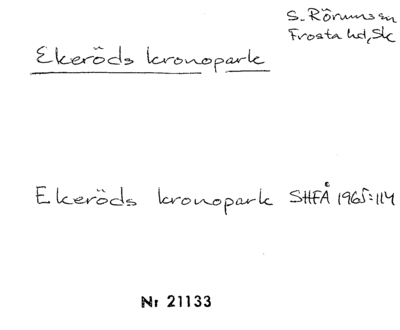 S. Rörums sn
Frosta hd, Sk
Ekeröds kronopark
Ekeröds kronopark SHFÅ 1965:114
Nr 21133